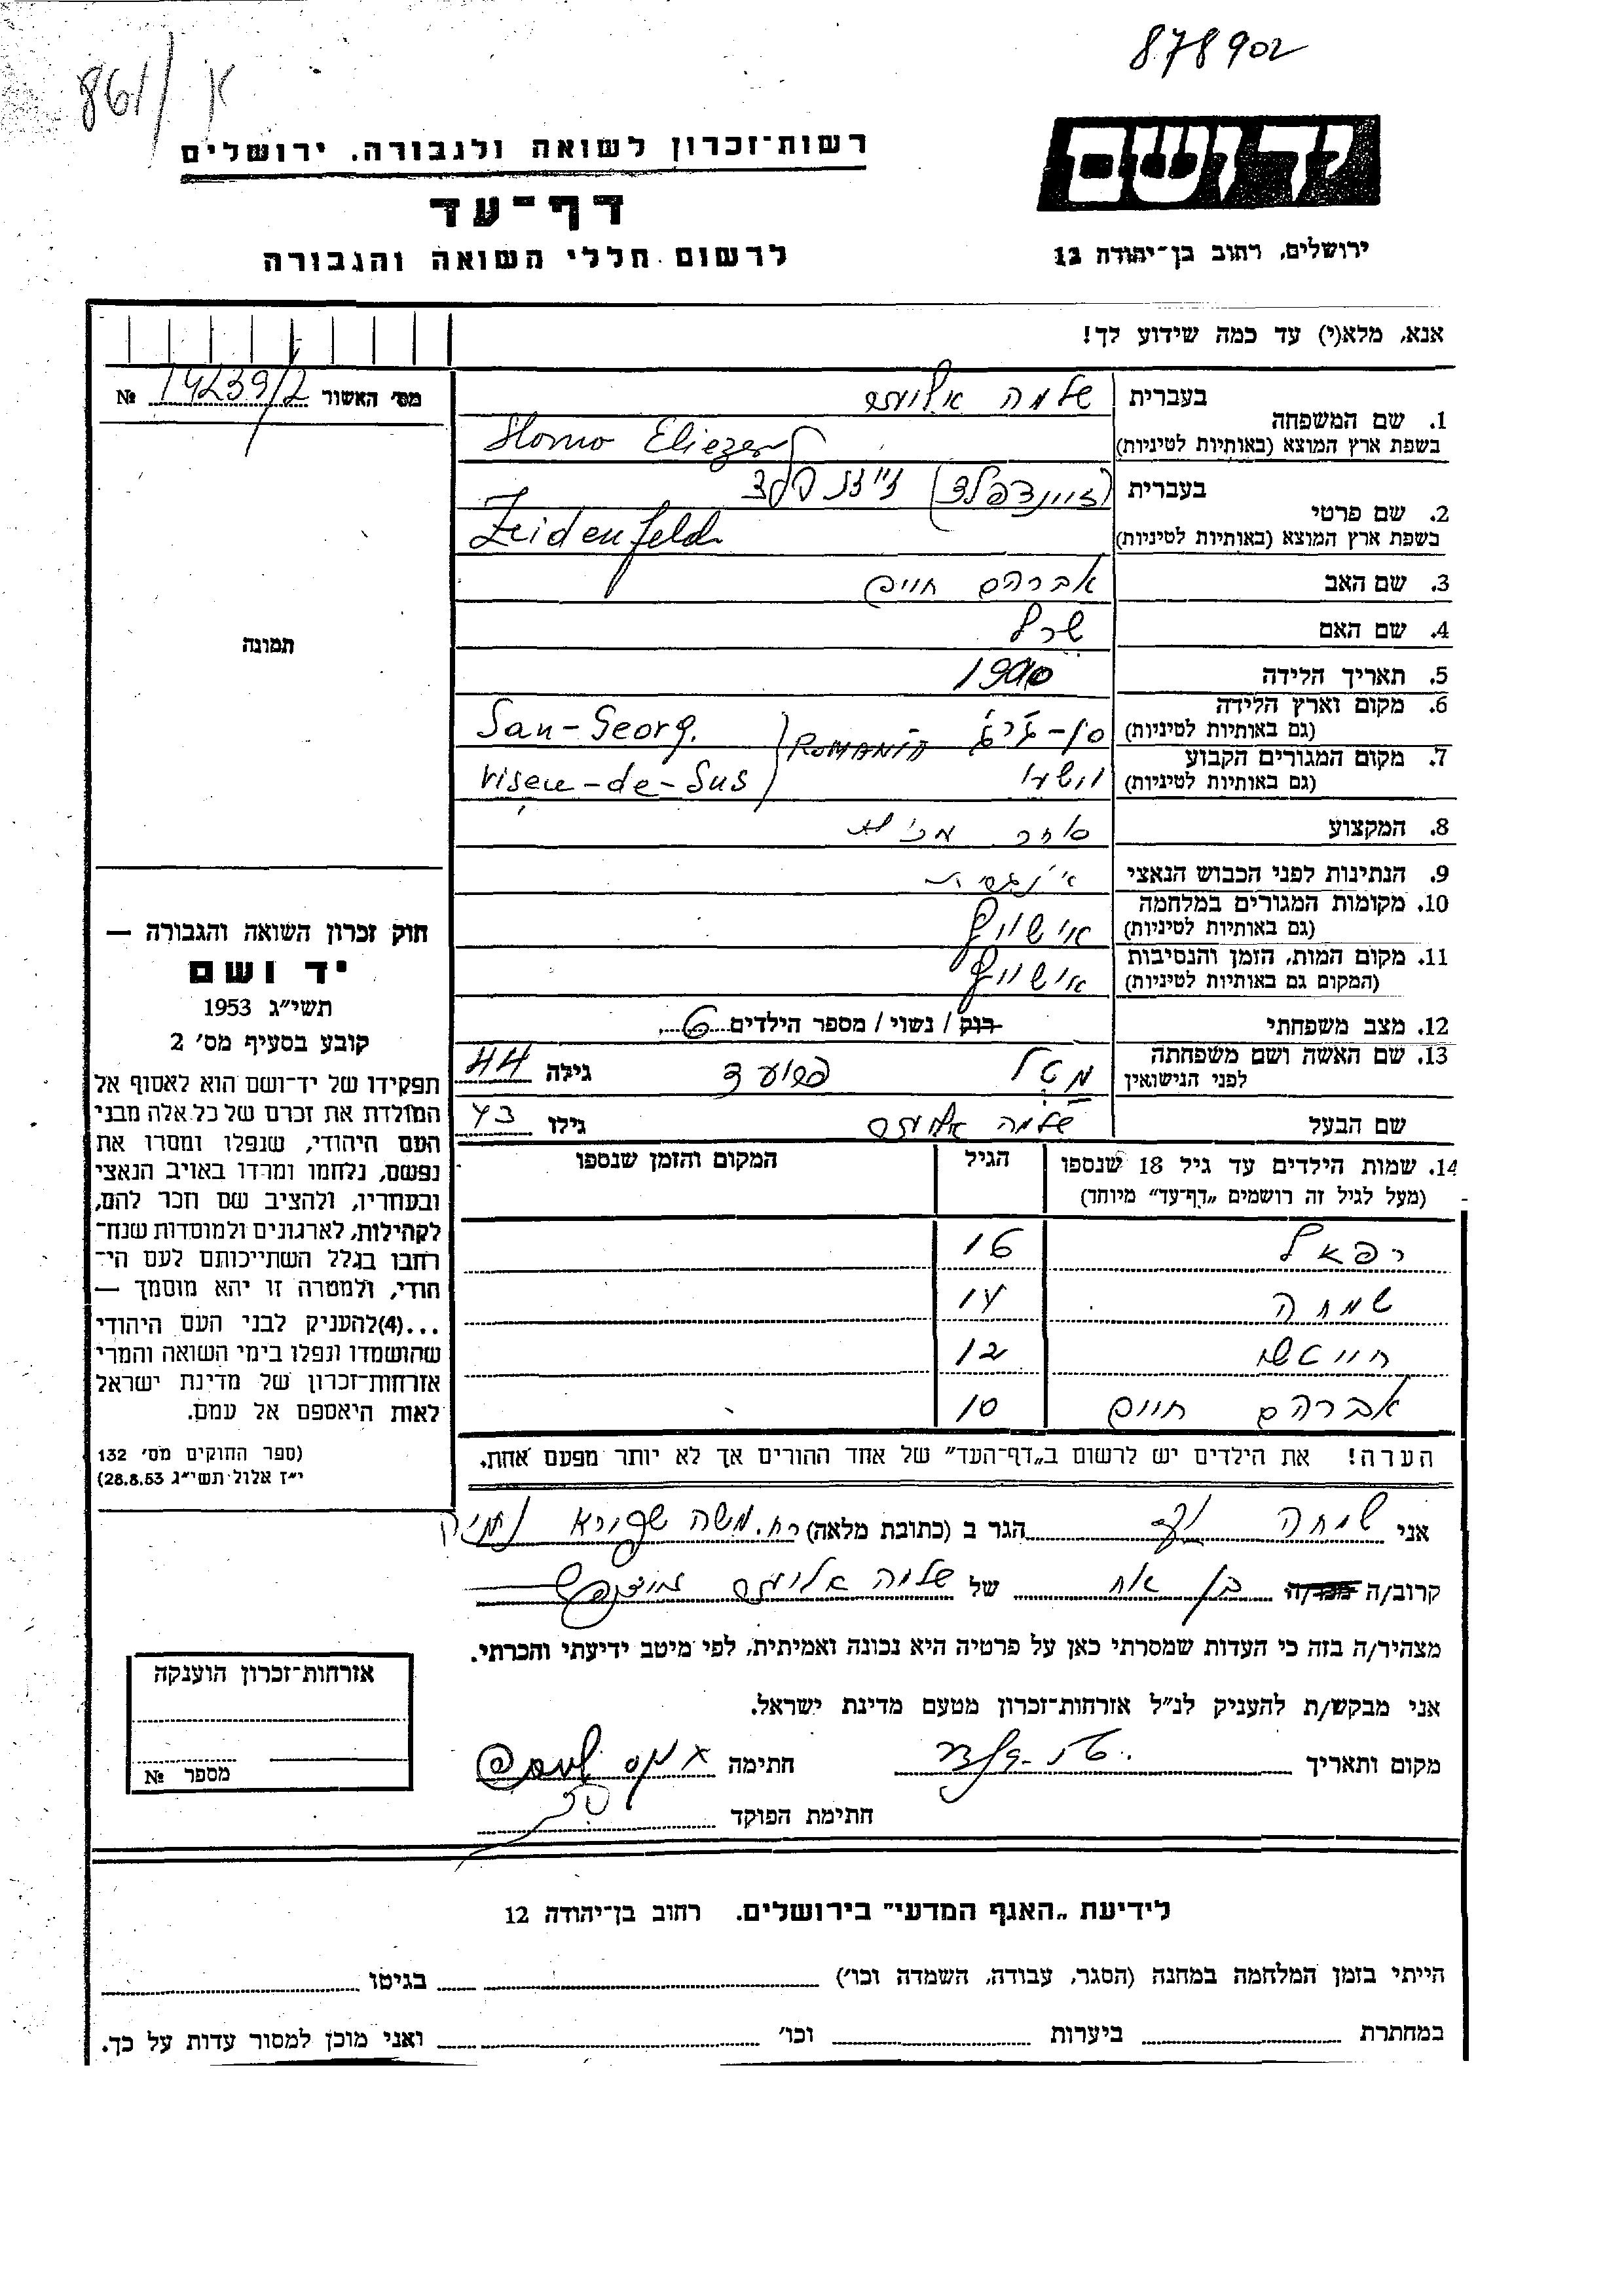 878902
861/א
יד ושם
רשות־זכרון לשואה ולגבורה. ירושלים
דף־עד
לרשום חללי השואה והגבורה
ירושלים, רחוב בן־יהודה 12
אנא, מלא(י) עד כמה שידוע לך!
מס׳ האשור 14239/2 №
תמונה
1. שם המשפחה
בעברית שלמה אליעזר
בשפת ארץ המוצא (באותיות לטיניות) Slomo Eliezer
2. שם פרטי
בעברית (זיינדפלד) זיידנפלד
בשפת ארץ המוצא (באותיות לטיניות) Zeidenfeld
3. שם האב אברהם חיים
4. שם האם שרל
5. תאריך הלידה
6. מקום וארץ הלידה
(גם באותיות לטיניות) San-Georg. ROMANIA
7. מקום המגורים הקבוע
(גם באותיות לטיניות) Viseu-de-Sus
8. המקצוע סוחר
9. הנתינות לפני הכבוש הנאצי
10. מקומות המגורים במלחמה
(גם באותיות לטיניות) אושוויץ
11. מקום המות, הזמן והנסיבות
(המקום גם באותיות לטיניות) אושוויץ
12. מצב משפחתי רוק / נשוי / מספר הילדים 6
13. שם האשה ושם משפחתה
לפני הנישואין מטל גילה 44
שם הבעל שלמה אליעזר גילו 43
14. שמות הילדים עד גיל 18 שנספו הגיל המקום והזמן שנספו
(מעל לגיל זה רושמים „דף־עד” מיוחד)
רפאל 16
שמחה 14
12
אברהם חיים 10
הערה! את הילדים יש לרשום ב„דף־העד” של אחד ההורים אך לא יותר מפעם אחת.
אני שמחה הגר ב (כתובת מלאה) רח. משה
קרוב/ה מכר/ה בן אח של שלמה אליעזר
מצהיר/ה בזה כי העדות שמסרתי כאן על פרטיה היא נכונה ואמיתית, לפי מיטב ידיעתי והכרתי.
אני מבקש/ת להעניק לנ״ל אזרחות־זכרון מטעם מדינת ישראל.
מקום ותאריך חתימה
חתימת הפוקד
חוק זכרון השואה והגבורה —
יד ושם
תשי״ג 1953
קובע בסעיף מס׳ 2
תפקידו של יד־ושם הוא לאסוף אל
המולדת את זכרם של כל אלה מבני
העם היהודי, שנפלו ומסרו את
נפשם, נלחמו ומרדו באויב הנאצי
ובעוזריו, ולהציב שם וזכר להם,
לקהילות, לארגונים ולמוסדות שנח־
רחבו בגלל השתייכותם לעם הי־
הודי, ולמטרה זו יהא מוסמך —
...(4)להעניק לבני העם היהודי
שהושמדו ונפלו בימי השואה והמרי
אזרחות־זכרון של מדינת ישראל
לאות היאספם אל עמם.
(ספר החוקים מס׳ 132
י״ז אלול תשי״ג 28.8.53)
אזרחות־זכרון הוענקה
מספר №
לידיעת „האגף המדעי” בירושלים. רחוב בן־יהודה 12
הייתי בזמן המלחמה במחנה (הסגר, עבודה, השמדה וכו׳) בגיטו
במחתרת ביערות וכו׳ ואני מוכן למסור עדות על כך.